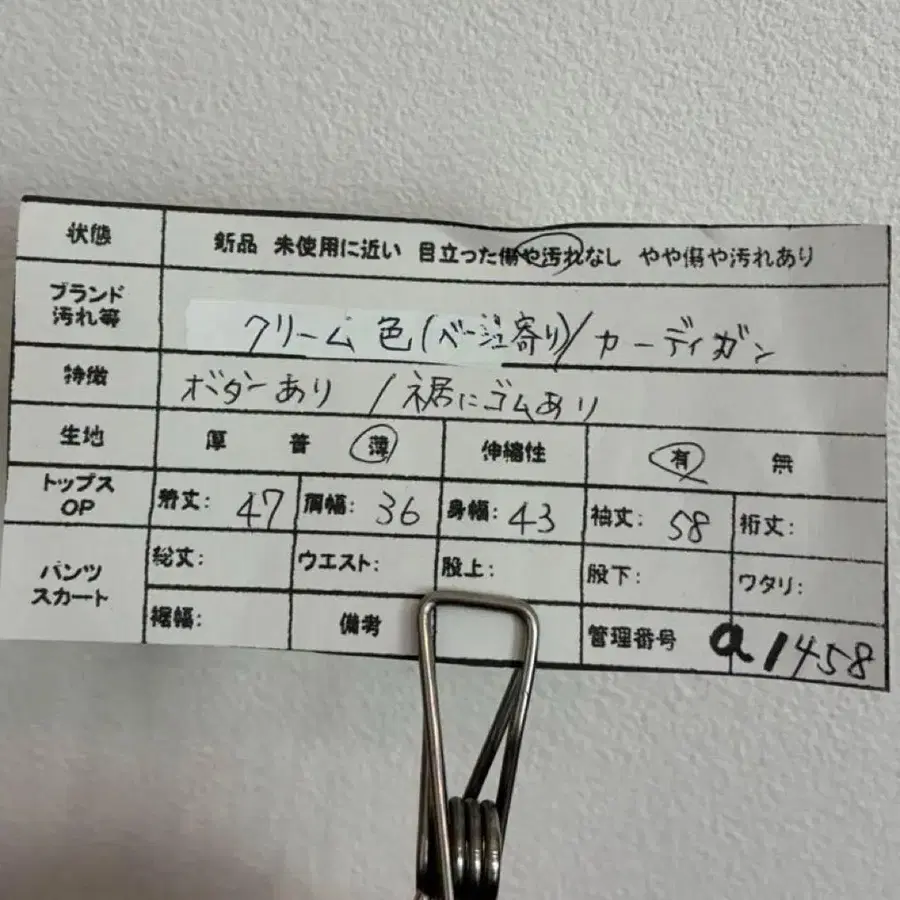 状態 新品 未使用に近い 目立った傷や汚れなし やや傷や汚れあり
ブランド
汚れ等 クリーム色(ベージュ寄り)/カーディガン
特徴 ボタンあり /裾にゴムあり
生地 厚 普 薄 伸縮性 有 無
トップス
OP 着丈: 47 肩幅: 36 身幅: 43 袖丈: 58 裄丈:
パンツ
スカート 総丈: ウエスト: 股上: 股下: ワタリ:
裾幅: 備考 管理番号 a1458